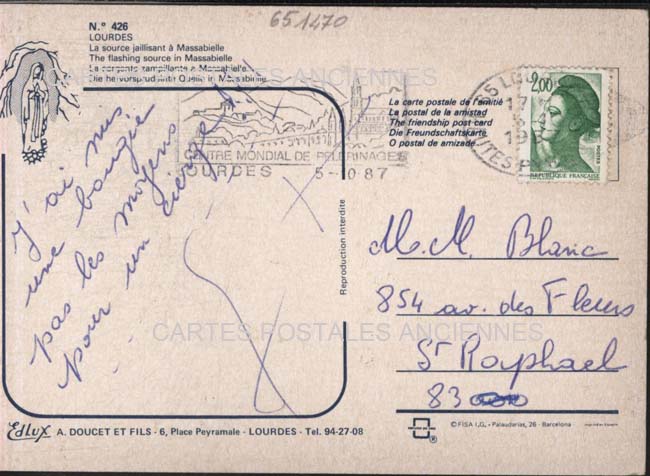 651470
N.º 426
LOURDES
La source jaillisant à Massabielle
The flashing source in Massabielle
La vergente zampillante a Massabielle
Die hervorsprud Quelle in Massabielle
CARTES POSTALES ANCIENNES
CENTRE MONDIAL DE PELERINAGES
LOURDES 5-10 87
La carte postale de l'amitié
La postal de la amistad
The friendship post card
Die Freundschaftskarte
O postal de amizade
65 LOURDES
17
HAUTES
2,00
POSTES
REPUBLIQUE FRANÇAISE
J'ai mis
une bougie
pas les moyens
pour un cierge
Reproduction interdite
M. M. Blanc
854 av. des Fleurs
St Raphael
83
CARTES POSTALES ANCIENNES
Edlux A. DOUCET ET FILS - 6, Place Peyramale - LOURDES - Tel. 94-27-08
© FISA I.G. - Palaudarias, 26 - Barcelona